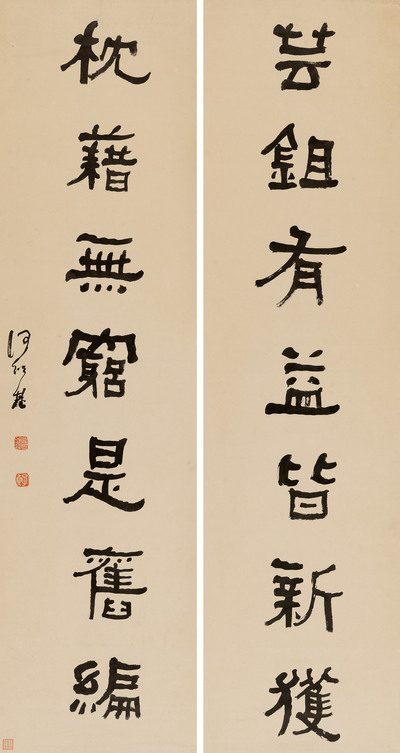 芸鉏有益皆新獲
枕藉無窮是舊編
何紹基